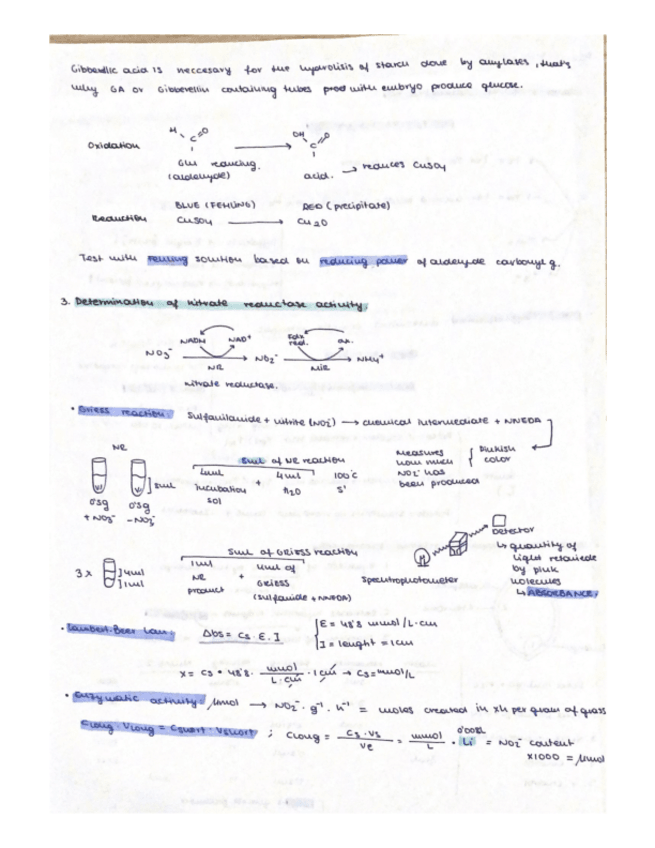 Gibberellic acid is neccesary for the hydrolisis of starch done by amylases, that's
why GA or Gibberellin containing tubes prod with embryo produce glucose.
H O OH O
Oxidation C → C
Glu reducing. acid. → reduces CuSO4
(aldehyde)
BLUE (FEHLING) RED (precipitate)
Reduction CuSO4 → Cu2O
Test with fehling solution based on reducing power of aldehyde carbonyl g.
3. Determination of nitrate reductase activity.
NADH NAD+ Fdx red. ox.
NO3- → NO2- → NH4+
NR NiR
nitrate reductase.
• Griess reaction: Sulfanilamide + nitrite (NO2-) → chemical intermediate + NNEDA
NR
5mL of NR reaction
1mL incubation sol + 4mL H2O 100°C 5'
Measures how much NO2- has been produced
Pinkish color
]5mL
0'5g 0'5g
+NO3- -NO3-
Detector
↳ quantity of light retained by pink molecules
↳ ABSORBANCE.
3x ]4mL ]1mL
5mL of GRIESS reaction
1mL NR product + 4mL of GRIESS
(sulfanilamide + NNEDA)
Spectrophotometer
• Lambert-Beer Law: Abs = Cs · E · l
E = 48'8 mmol/L·cm
l = lenght = 1cm
X = Cs · 48'8 · mmol/L·cm · 1cm → Cs = mmol/L
• Enzymatic activity: μmol → NO2- · g-1 · h-1 = moles created in xh per gram of grass
Clong · Vlong = Cshort · Vshort ; Clong = Cs · Vs / Ve = mmol/L · 0'005L = NO2- content
x1000 = μmol